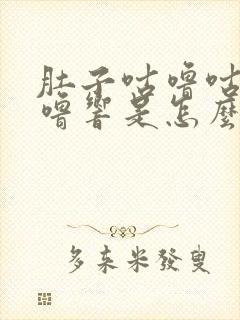 肚子咕噜咕
噜響是怎麽
多来米發叟